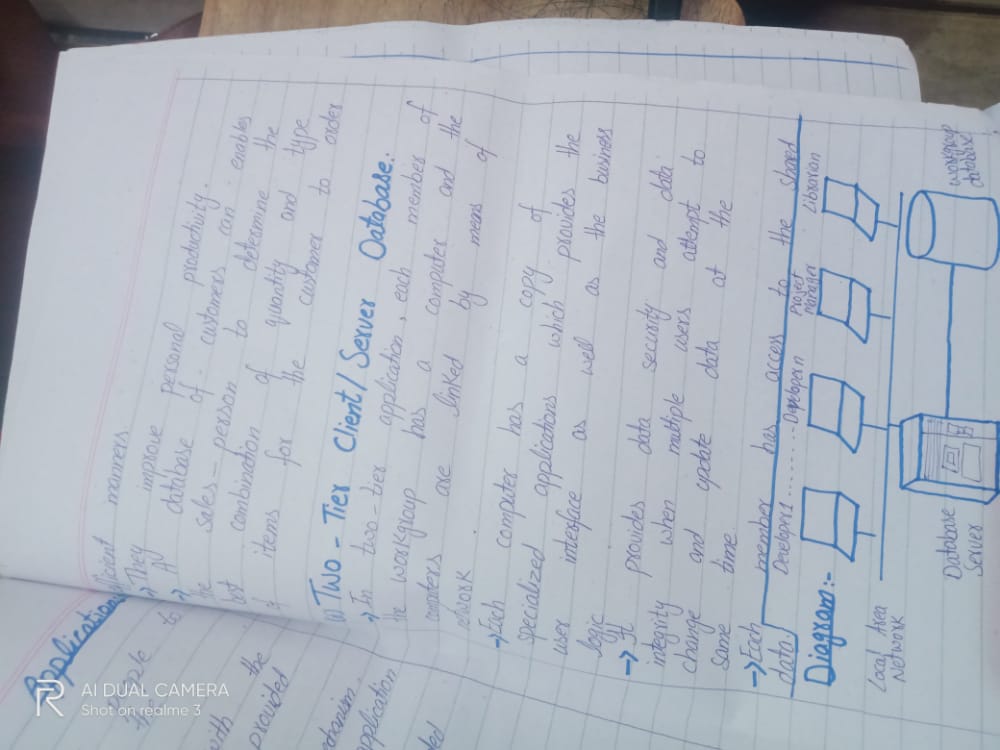 efficient manners
→ They improve personal productivity.
→ A database of customers can enables
the sales-person to determine the
best combination of quantity and type
of items for the customer to order
(i) Two-Tier Client/Server Database:
→ In two-tier application, each member of
the workgroup has a computer and the
computers are linked by means of
network.
→ Each computer has a copy of
specialized applications which provides the
user interface as well as the business
logic
→ It provides data security and data
integrity when multiple users attempt to
change and update data at the
same time
→ Each member has access to the shared
data
Diagram:-
Developer1 ........ Developer n Project Manager Librarian
Local Area
Network
Database
Server
workgroup
database
Applications
people to
with
provided the
application
AI DUAL CAMERA
Shot on realme 3